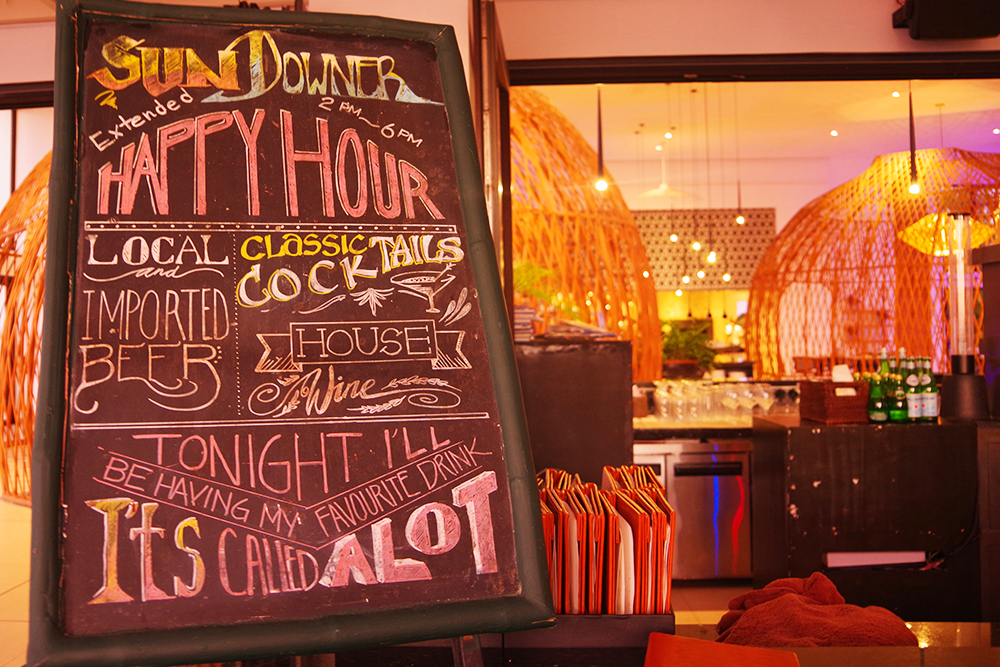 SUN DOWNER
Extended
2 PM ~ 6 PM
HAPPY HOUR
LOCAL
and
IMPORTED
BEER
CLASSIC
COCKTAILS
HOUSE
Wine
TONIGHT I'LL
BE HAVING MY FAVOURITE DRINK
It's CALLED A LOT